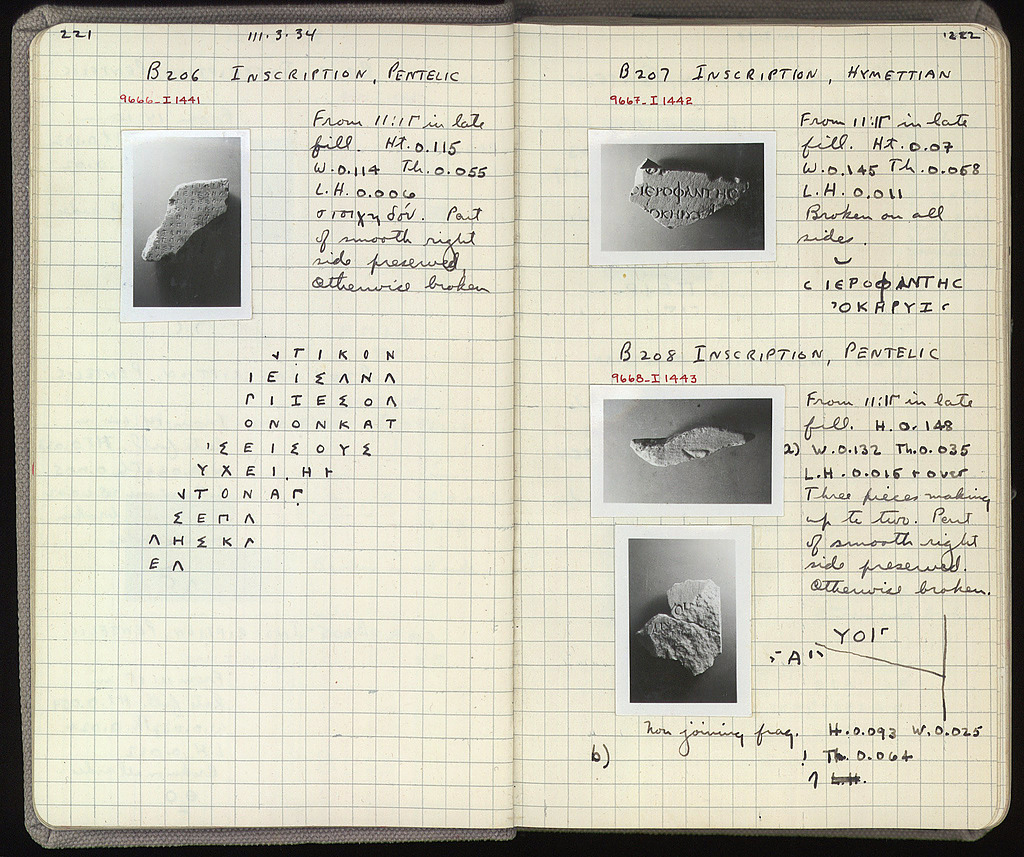 221
III.3.34
B206 INSCRIPTION, PENTELIC
9666-I 1441
From 11:ΙΓ in late
fill. Ht. 0.115
W. 0.114 Th. 0.055
L.H. 0.006
στοιχηδόν. Part
of smooth right
side preserved.
Otherwise broken
Τ Ι Κ Ο Ν
Ι Ε Ι Σ Λ Ν Λ
Γ Ι Ι Ε Σ Ο Λ
Ο Ν Ο Ν Κ Α Τ
Σ Ε Ι Σ Ο Υ Σ
Υ Χ Ε Ι . Η Ͱ
Τ Ο Ν Α Γ
Σ Ε Π Λ
Λ Η Σ Κ Λ
Ε Λ
222
B207 INSCRIPTION, HYMETTIAN
9667-I 1442
From 11:ΙΓ in late
fill. Ht. 0.07
W. 0.145 Th. 0.058
L.H. 0.011
Broken on all
sides.
ΙΕΡΟΦΑΝΤΗC
ΟΚΗΡΥΞ
C ΙΕΡΟΦΑΝΤΗC
ΟΚΗΡΥΙ
B208 INSCRIPTION, PENTELIC
9668-I 1443
From 11:ΙΓ in late
fill. H. 0.148
a) W. 0.132 Th. 0.035
L.H. 0.015 + over
Three pieces making
up to two. Part
of smooth right
side preserved.
Otherwise broken.
ΥΟΙΓ
Α
Non joining frag. H. 0.093 W. 0.025
b) Th. 0.064